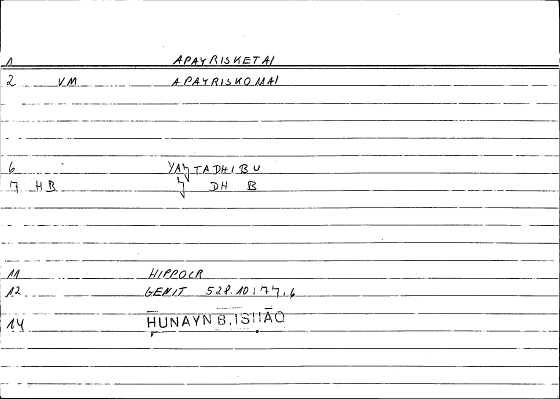 1 APAYRISKETAI
2 VM APAYRISKOMAI
6
7 HB DH B
11 HIPPOCR
12 GENIT 528.10; 77,6
14 HUNAYN B. ISḤĀQ